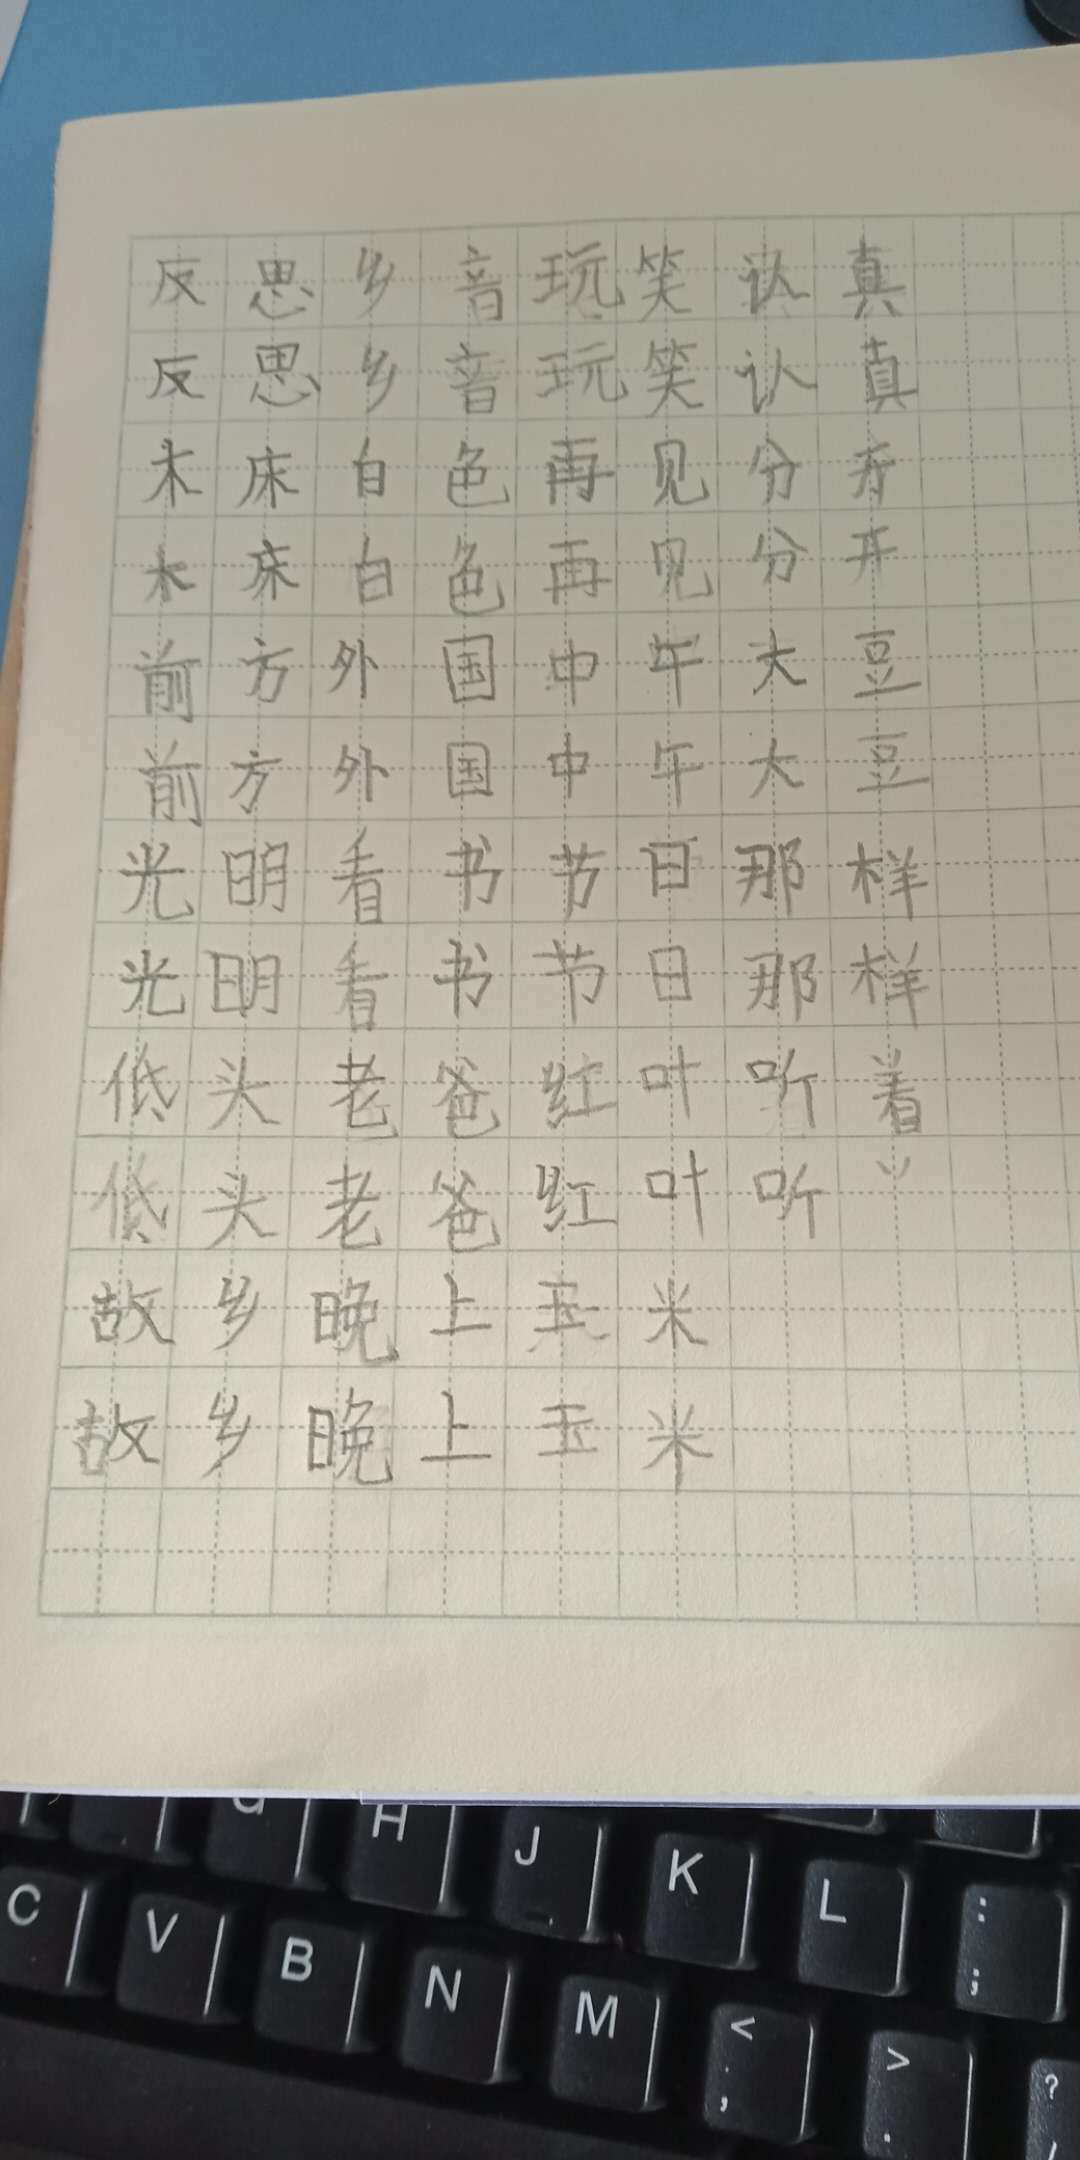 反思乡音玩笑认真
反思乡音玩笑认真
木床白色再见分开
木床白色再见分开
前方外国中午大豆
前方外国中午大豆
光明看书节日那样
光明看书节日那样
低头老爸红叶听着
低头老爸红叶听
故乡晚上玉米
故乡晚上玉米
G H J K L : ;
C V B N M < , > . ? /